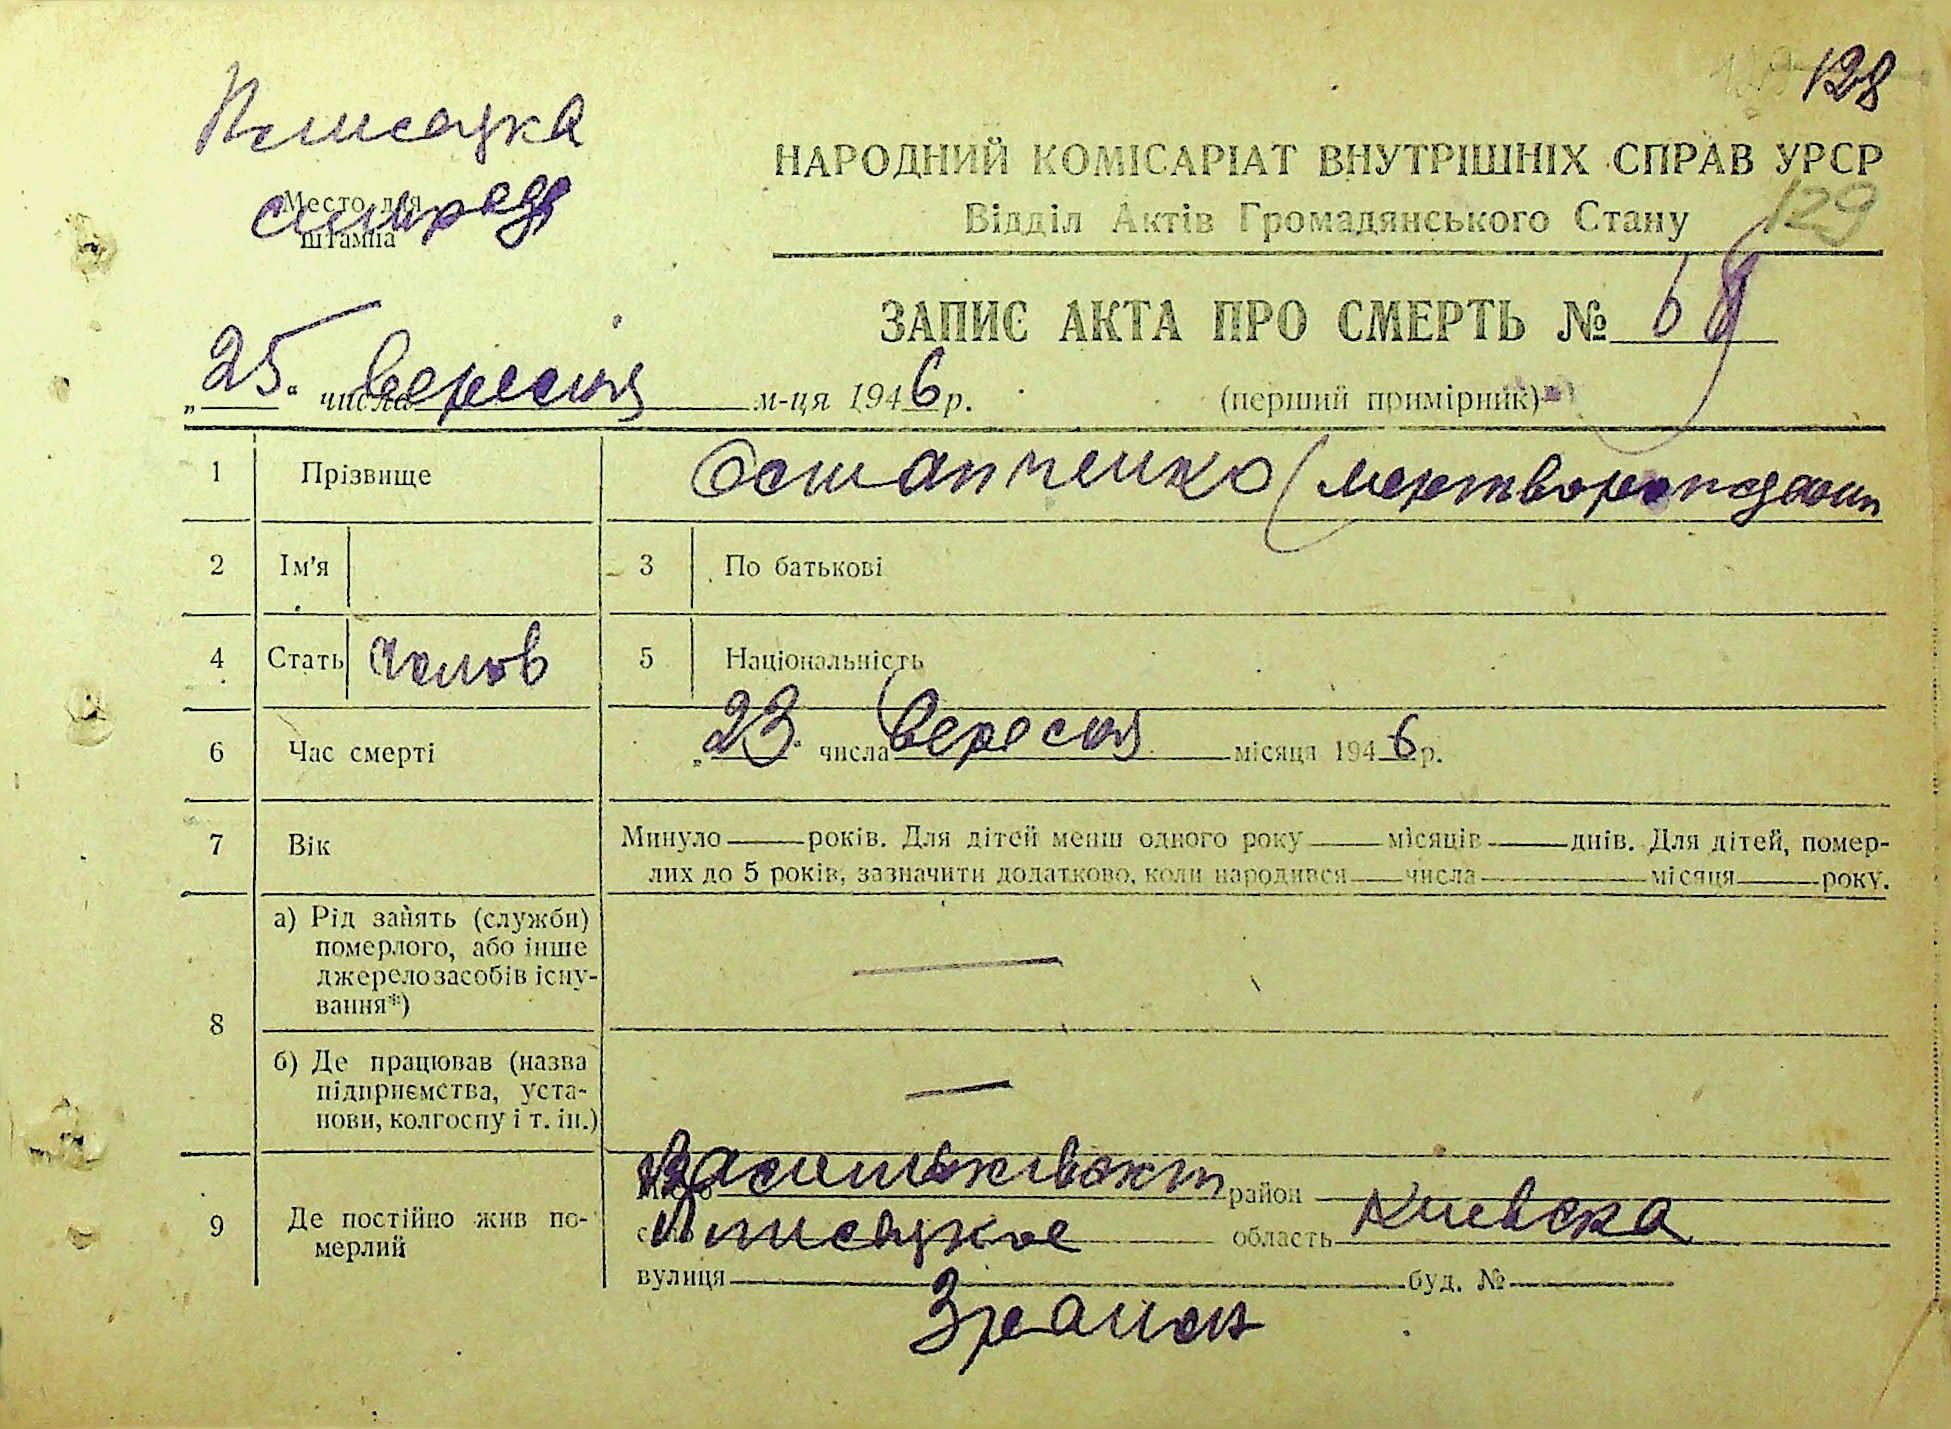 128
Плисецка
сільрада
Место для
штампа
НАРОДНИЙ КОМІСАРІАТ ВНУТРІШНІХ СПРАВ УРСР
Відділ Актів Громадянського Стану
129
ЗАПИС АКТА ПРО СМЕРТЬ № 68
„25“ числа вересня м-ця 1946 р.
(перший примірник)
1 Прізвище Остапченко (
2 Ім'я 3 По батькові
4 Стать чолов 5 Національність
6 Час смерті „23“ числа вересня місяця 1946 р.
7 Вік Минуло років. Для дітей менш одного року місяців днів. Для дітей, помер-
лих до 5 років, зазначити додатково, коли народився числа місяця року.
8 а) Рід занять (служби)
померлого, або інше
джерело засобів існу-
вання*) —
б) Де працював (назва
підприємства, уста-
нови, колгоспу і т. ін.) —
9 Де постійно жив по-
мерлий
район
Плисецкое область Киевска
вулиця буд. №